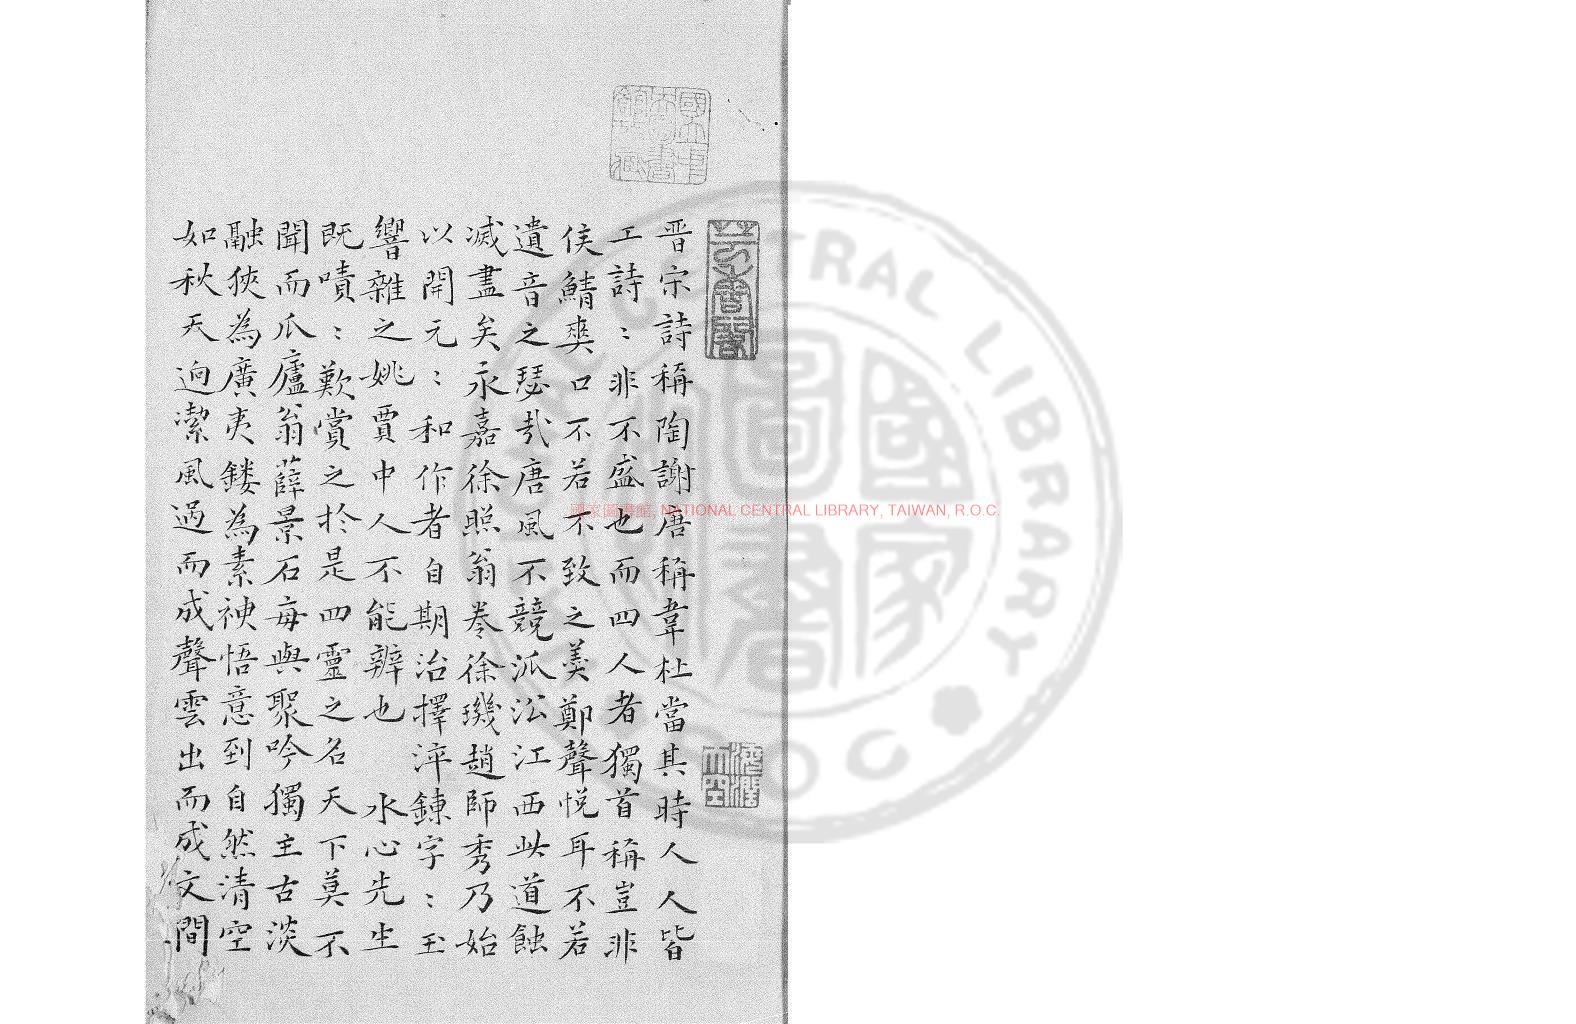 晋宗詩稱陶謝唐稱韋杜當其時人人皆
工詩：非不盛也而四人者獨首稱豈非
侯鯖爽口不若不致之羹鄭聲悅耳不若
遺音之瑟哉唐風不競派㳂江西此道蝕
滅盡矣永嘉徐照翁卷徐璣趙師秀乃始
以開元：和作者自期治擇淬鍊字：玉
響雜之姚賈中人不能辨也 水心先生
既嘖：歎賞之於是四靈之名天下莫不
聞而爪廬翁薛景石每與聚吟獨主古淡
融狹為廣夷鏤為素神悟意到自然清空
如秋天迥潔風過而成聲雲出而成文間
國家圖書館, NATIONAL CENTRAL LIBRARY, TAIWAN, R.O.C.
國立中央圖書館
NATIONAL CENTRAL LIBRARY
R.O.C.
國家圖書